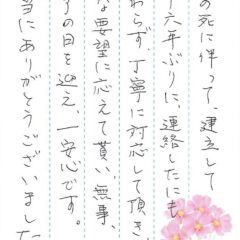 の死に伴って、建立して
十六年ぶりに、連絡したにも
わらず、丁寧に対応して頂き
な要望に応えて貰い、無事、
了の日を迎え、一安心です。
当にありがとうございました